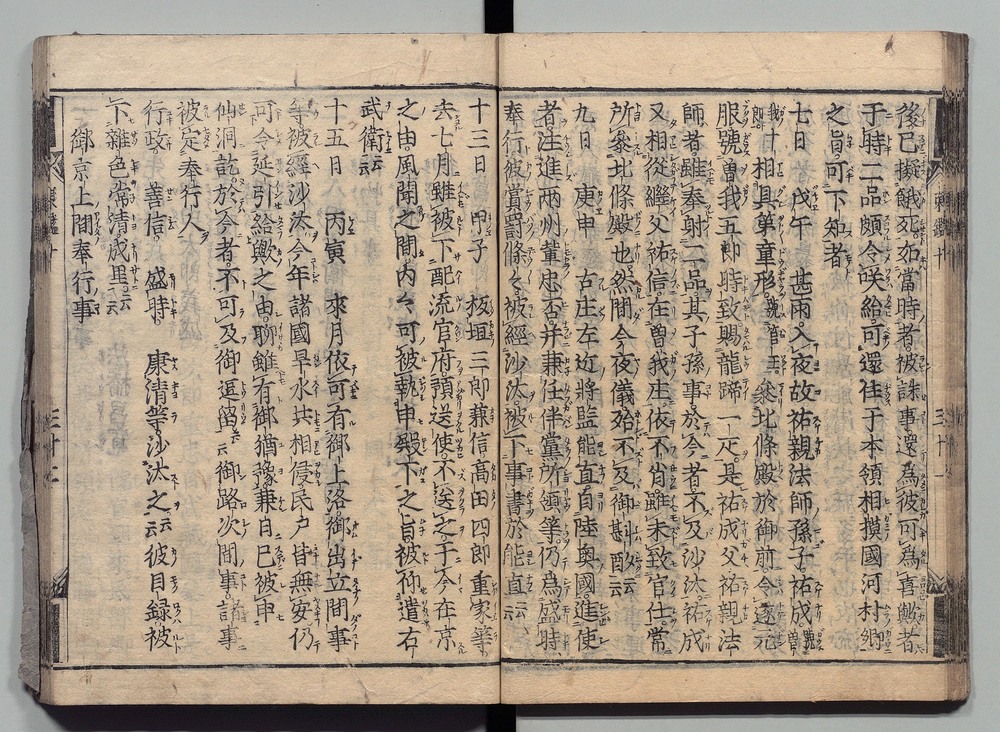 後已擬餓死如當時者被誅事還為彼可為喜歟者
于時二品頗令咲給可還住于本領相摸國河村郷
之旨可下知者
七日　戊午　甚雨入夜故祐親法師孫子祐成號曽
我十郎相具弟童形號筥王參北條殿於御前令遂元
服號曽我五郎時致賜龍蹄一疋是祐成父祐親法
師者雖奉射二品其子孫事於今者不及沙汰祐成
又相從繼父祐信在曽我庄依不肖雖未致官仕常
所參北條殿也然間今夜儀殆不及御斟酌云云
九日　庚申　古庄左近將監能直自陸奥國進使
者注進兩州輩忠否并兼任伴黨所領等仍為盛時
奉行被賞罰條々被經沙汰被下事書於能直云云
十三日　甲子　板垣三郎兼信髙田四郎重家等
去七月雖被下配流官府領送使不送之于今在京
之由風聞之間内々可被執申殿下之旨被仰遣右
武衛云云
十五日　丙寅　來月依可有御上洛御出立間事
等被經沙汰今年諸國旱水共相侵民戸皆無安仍
可令延引給歟之由聊雖有御猶豫兼自已被申
仙洞訖於今者不可及御逗留云云御路次間事諸事
被定奉行人
行政　善信　盛時　廣清等沙汰之云云彼目録被
下雜色常清成里云云
御京上間奉行事
東鑑十
三十二